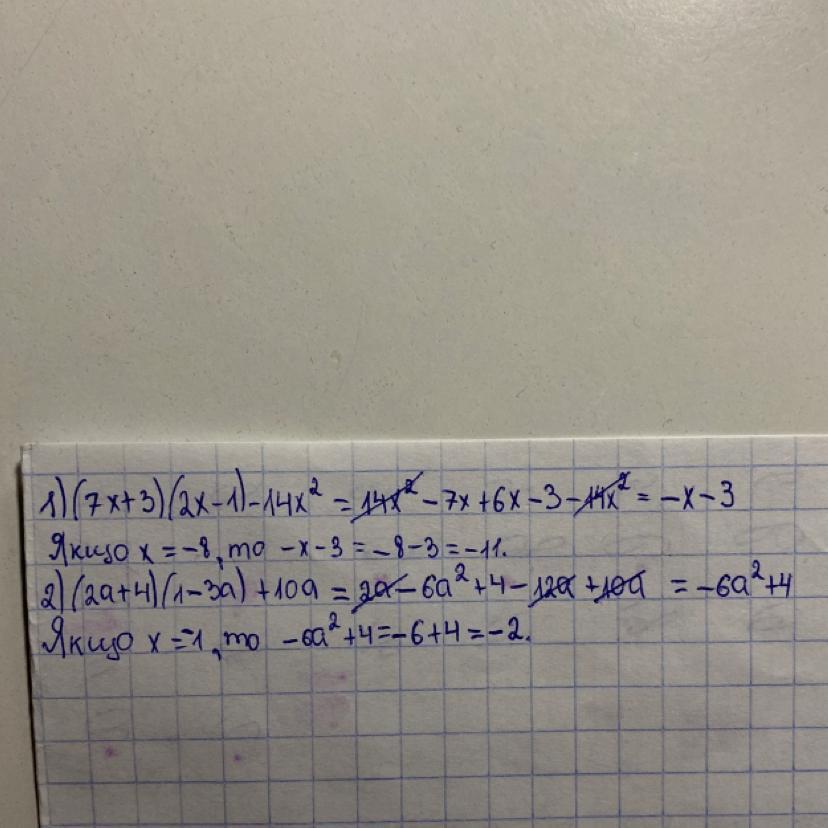 1) (7x+3)(2x-1)-14x² = 14x² - 7x + 6x - 3 - 14x² = -x - 3
Якщо x = -8, то -x - 3 = -8 - 3 = -11.
2) (2a+4)(1-3a) + 10a = 2a - 6a² + 4 - 12a + 10a = -6a² + 4
Якщо x = -1, то -6a² + 4 = -6 + 4 = -2.